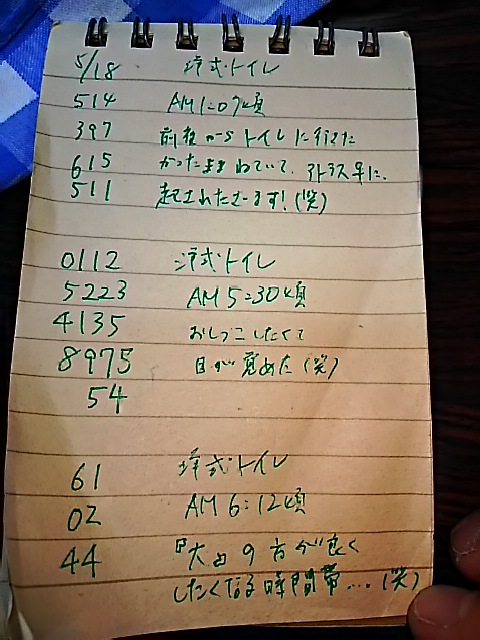 5/18 洋式トイレ
514 AM1:07頃
397 前後からトイレに行きた
615 かったままねていて、早に、
511 起されたさーます!(笑)
0112 洋式トイレ
5223 AM5:30頃
4135 おしっこしたくて
8975 目が覚めた(笑)
54
61 洋式トイレ
02 AM6:12頃
44 『大』の方が良く
したくなる時間帯…(笑)